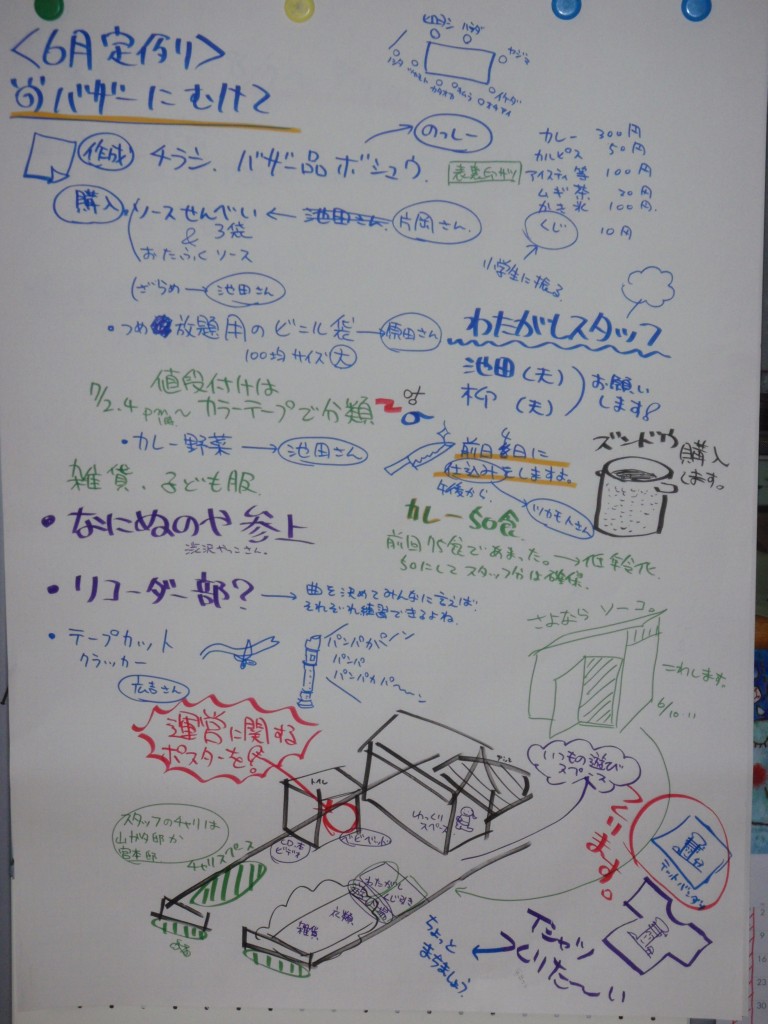 <6月定例リ>
バザーにむけて
作成 チラシ、バザー品ボシュウ
のっしー
カレー 300円
カルピス 50円
アイスティ等 100円
ムギ茶 20円
かき氷 100円
くじ 10円
小学生に振る
購入 ・ソースせんべい ← 池田さん 片岡さん
& 3袋
おたふくソース
(ざらめ → 池田さん
・つめ放題用のビニル袋 → 原田さん
100均サイズ 大
わたがしスタッフ
池田(夫)
柳(夫)
お願いします!
値段付けは
7/2.4 pm~ カラーテープで分類
・カレー野菜 → 池田さん
前日4日に
仕込みをしますよ。
午後から
ツカモトさん
ズンドウ
購入します。
雑貨、子ども服
カレー50食
前回75食であまった。→低齢化
50にしてスタッフ分は確保
・なにぬのや参上
渋沢やっこさん
・リコーダー部? → 曲を決めてみんなに言えば
それぞれ練習できるよね。
・テープカット
クラッカー
広吉さん
パンパカパーン
パンパ
パンパカパ〜〜ン
さよなら ソーコ。
こわします。
6/10
運営に関する
ポスターを!
トイレ
テント
ゆっくりスペース
いつもの遊びスペース
スタッフのチャリは
山ガタ邸か
宮本邸
チャリスペース
CD.本
ビデオ
わたがし
衣類
雑貨
つくります。
テントバンダナ
Tシャツ
つくりた〜い
ちょっと
まちましょう。
2
9
16
23
30